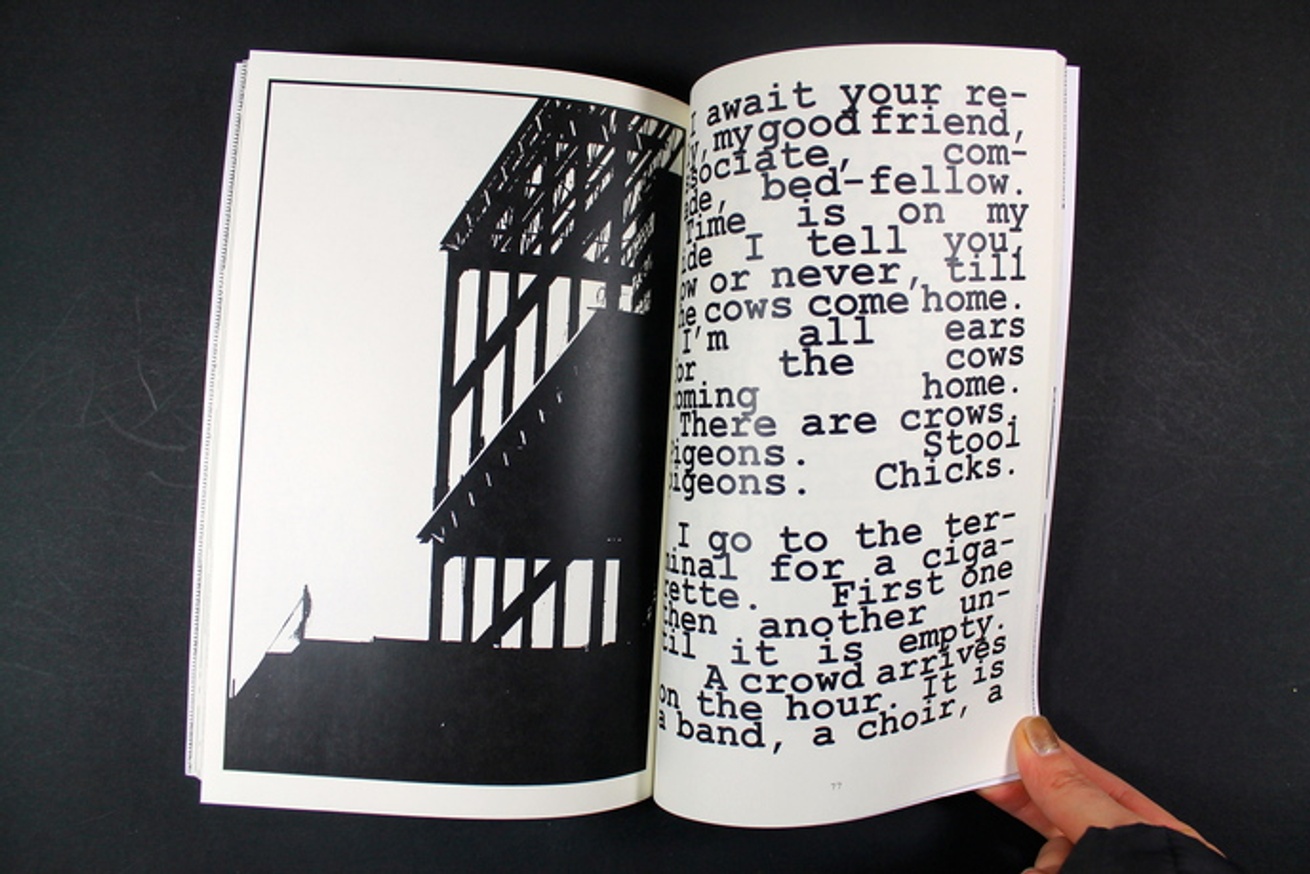 I await your re-
y, my good friend,
sociate, com-
ade, bed-fellow.
Time is on my
ide I tell you,
ow or never, till
he cows come home.
I'm all ears
or the cows
oming home.
There are crows.
igeons. Stool
igeons. Chicks.
I go to the ter-
inal for a ciga-
rette. First one
then another un-
til it is empty.
A crowd arrives
on the hour. It is
a band, a choir, a
77